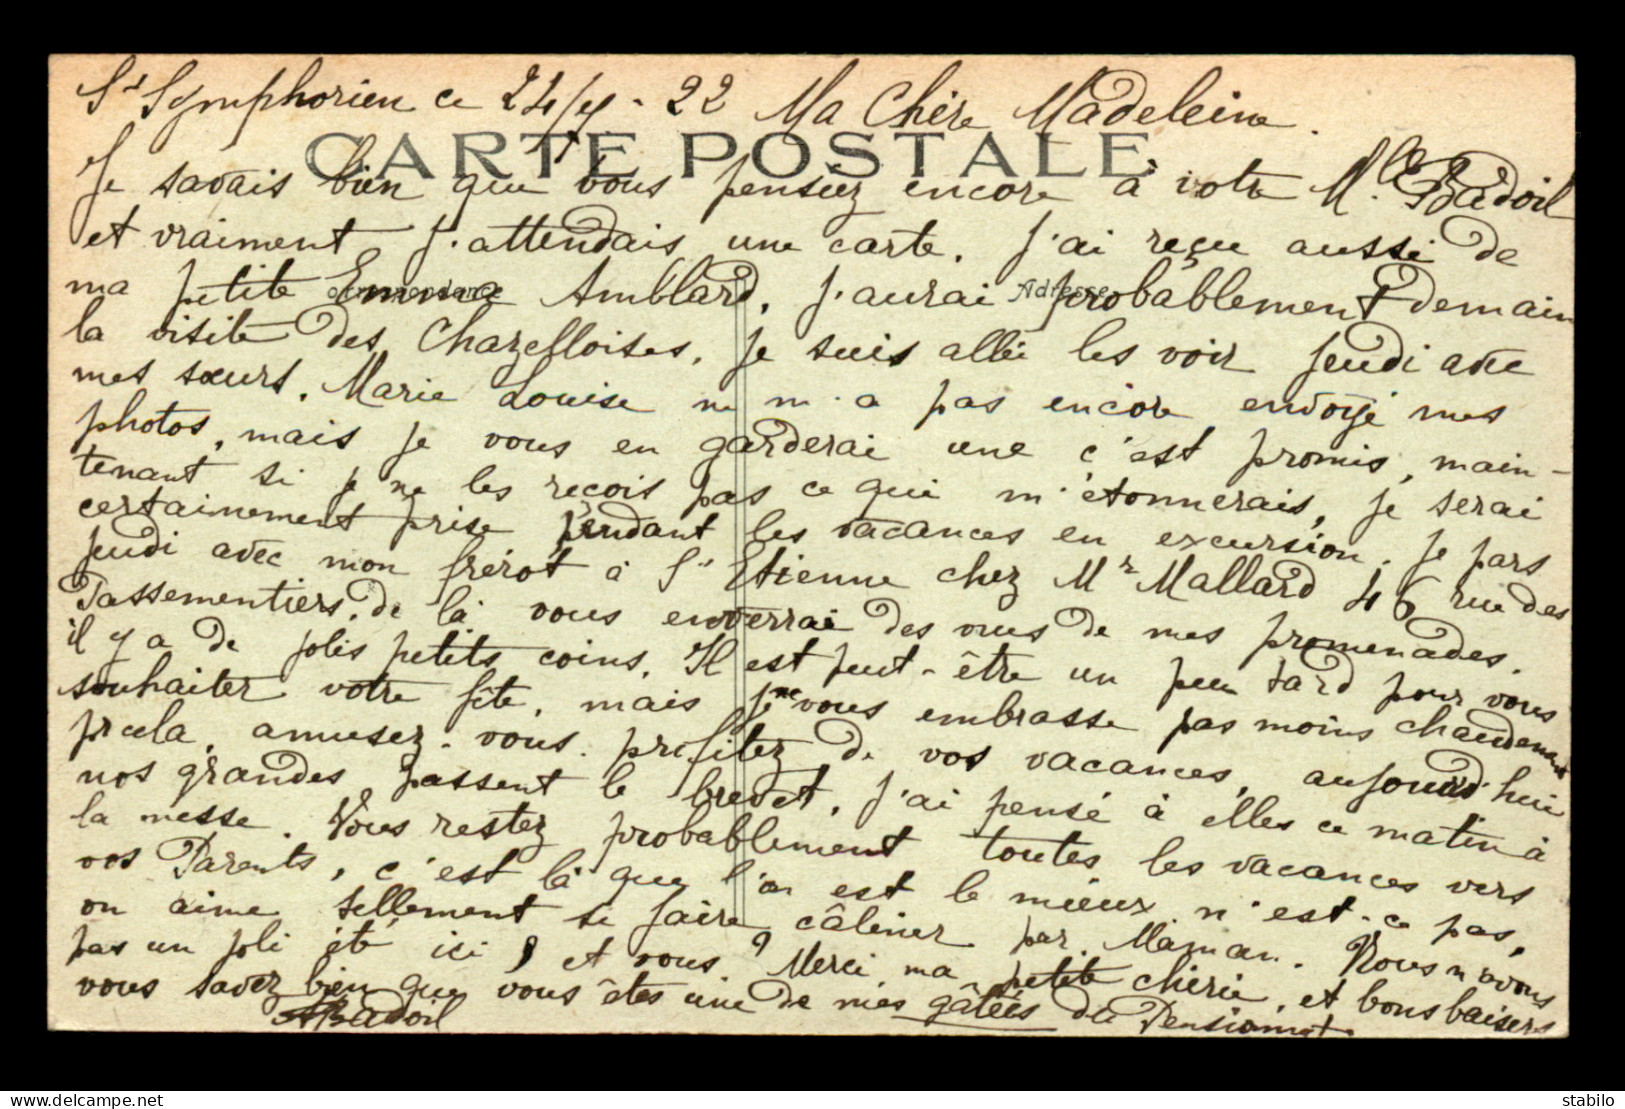 St Symphorien ce 24/7 - 22 Ma Chère Madeleine.
CARTE POSTALE
Je savais bien que vous pensiez encore à votre Mlle Badoil
et vraiment j'attendais une carte. J'ai reçu aussi de
Correspondance
Adresse
ma petite Emma Amblard, j'aurai probablement demain
la visite des Chazelloises. Je suis allée les voir jeudi avec
mes sœurs. Marie Louise ne m'a pas encore envoyé mes
photos, mais je vous en garderai une c'est promis, main-
tenant si je ne les reçois pas ce qui m'étonnerais, je serai
certainement prise pendant les vacances en excursion. Je pars
jeudi avec mon frérot à St Etienne chez Mr Mallard 46 rue des
Passementiers. de là vous enverrai des vues de mes promenades.
il y a de jolis petits coins. Il est peut-être un peu tard pour vous
souhaiter votre fête, mais je ne vous embrasse pas moins chaudement
pr cela, amusez-vous. profitez de vos vacances, aujourd'hui
nos grandes passent le brevet, j'ai pensé à elles ce matin à
la messe. Vous restez probablement toutes les vacances vers
vos Parents, c'est là que l'on est le mieux n'est-ce pas,
on aime tellement se faire câliner par Maman. Nous n'avons
pas un joli été ici, et vous? Merci ma petite chérie, et bons baisers
vous savez bien que vous êtes une de mes gâtées du Pensionnat
ABadoil
stabilo